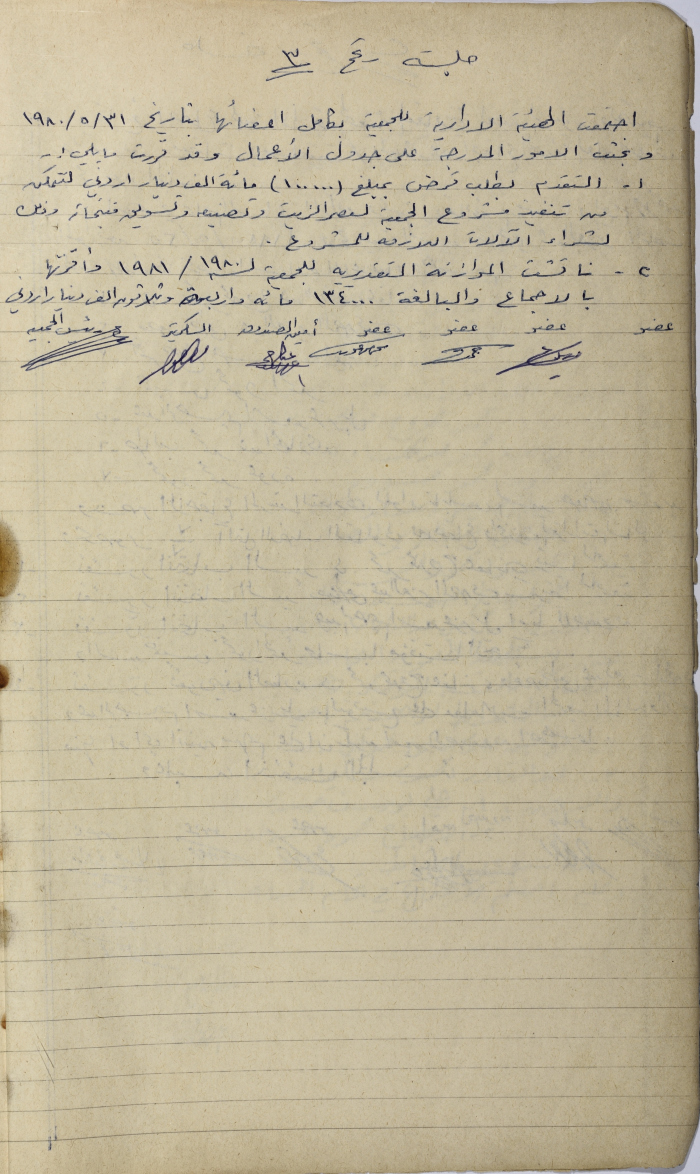 جلسة رقم ٣
اجتمعت الهيئة الادارية للجمعية بكامل اعضائها بتاريخ ٣١/٥/١٩٨٠
و بحثت الامور المدرجة على جدول الأعمال وقد قررت مايلي :-
١- التقدم بطلب قرض بمبلغ (١٠٠٠٠٠) مائة الف دينار اردني لتتمكن
من تنفيذ مشروع الجمعية لعصر الزيت وتصنيعه وتسويق منتجاته وذلك
لشراء الآلات اللازمة للمشروع .
٢- ناقشت الموازنة التقديرية للجمعية لسنة ١٩٨٠/ ١٩٨١ وأقرتها
بالاجماع والبالغة ١٣٤٠٠٠ مائة واربعة وثلاثون الف دينار اردني
عضو عضو عضو عضو أمين الصندوق السكرتير رئيس الجمعية